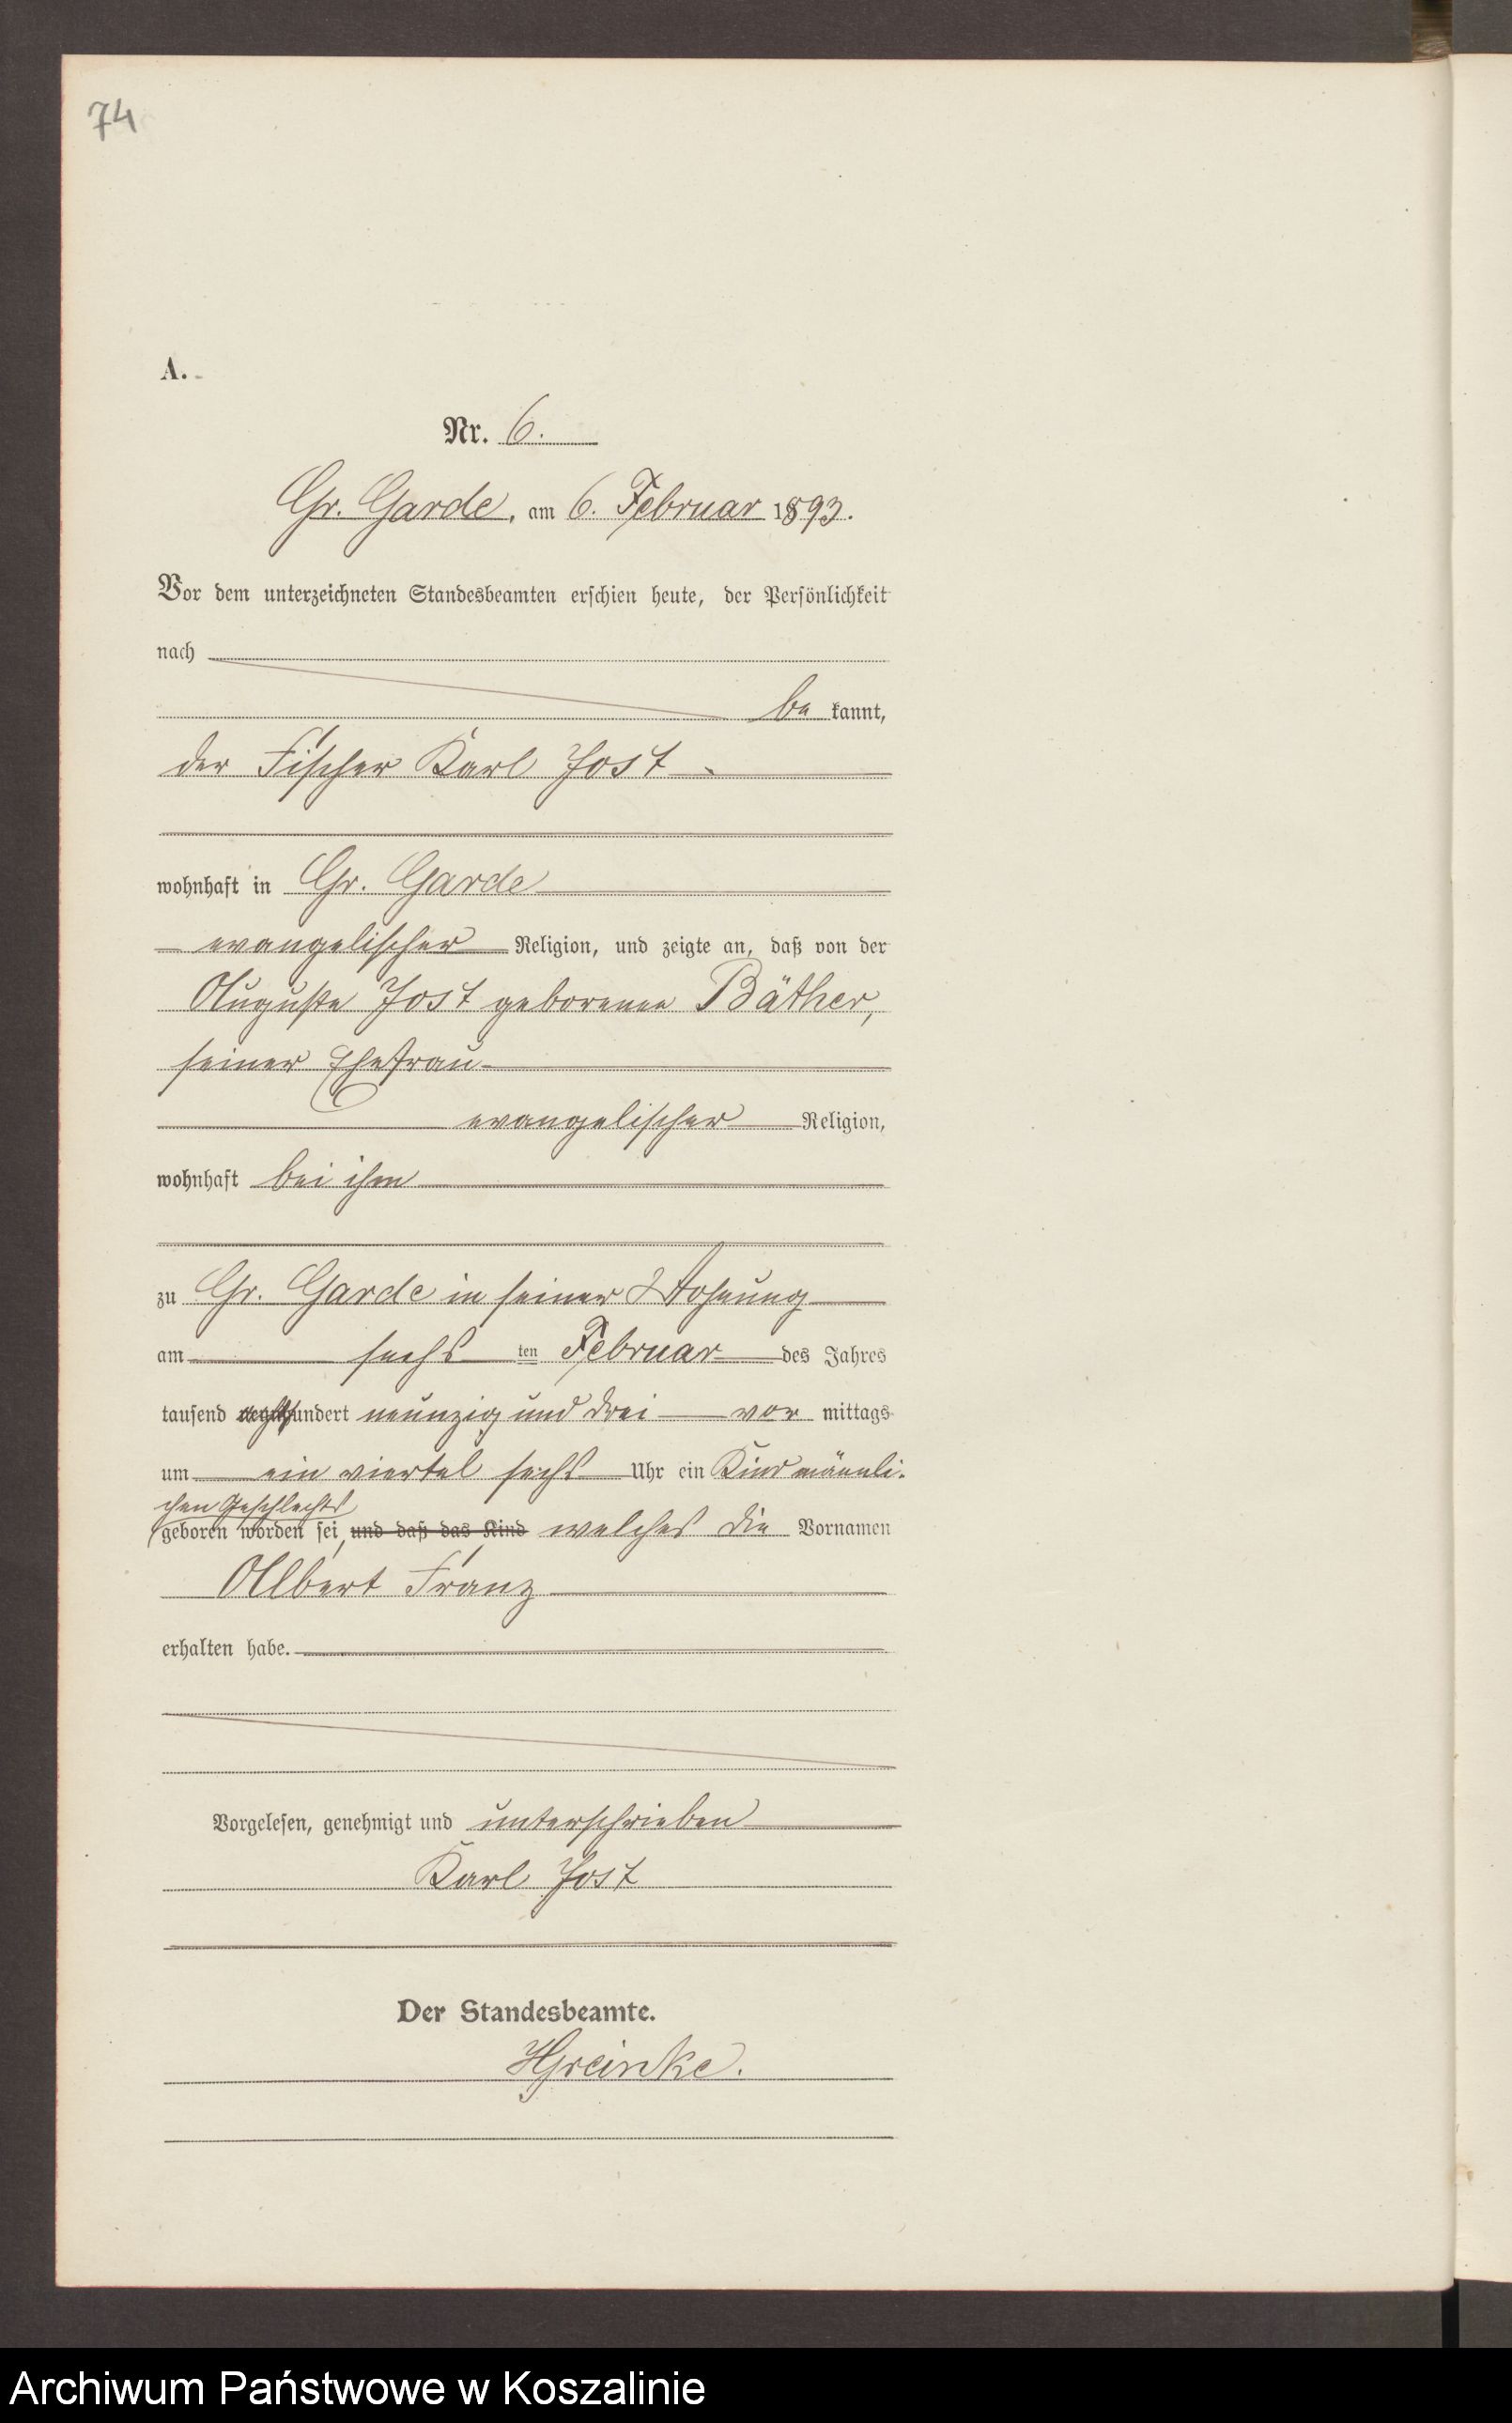 74
A.
Nr. 6.
Gr. Garde, am 6. Februar 1893.
Vor dem unterzeichneten Standesbeamten erschien heute, der Persönlichkeit
nach
be kannt,
der Fischer Karl Jost
wohnhaft in Gr. Garde
evangelischer Religion, und zeigte an, daß von der
Auguste Jost geborenen Bäther,
seiner Ehefrau
evangelischer Religion,
wohnhaft bei ihm
zu Gr. Garde in seiner Wohnung
am sechs ten Februar des Jahres
tausend achthundert neunzig und drei vor mittags
um ein viertel sechs Uhr ein Kind männli-
chen Geschlechts
geboren worden sei, und daß das Kind welches die Vornamen
Albert Franz
erhalten habe.
Vorgelesen, genehmigt und unterschrieben
Karl Jost
Der Standesbeamte.
Archiwum Państwowe w Koszalinie